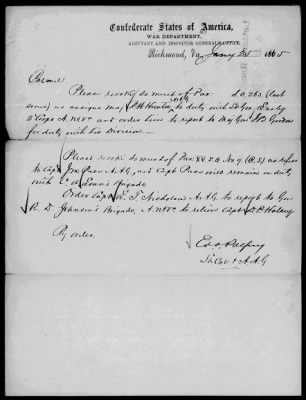 Confederate States of America,
WAR DEPARTMENT,
ADJUTANT AND INSPECTOR GENERAL'S OFFICE,
Richmond, Va., Jany 1865
Colonel
Please revoke so much of Par. S.O. 263. (last
series) as assigns Maj. to duty with Lt Gen Early
2' Corps A.N.Va. and order him to report to Maj Gen Gordon
for duty with his Division.
Please revoke so much of Par. XX S.O. No 9 (C.S) as refers
to Capt. A.A.G., and Capt. will remain on duty
with Evans' Brigade
Order Capt. E. T. Nicholson A.A.G. to report to Gen
R. D. Johnson's Brigade, A.N.Va. to relieve Capt. Halsey
By order.
Ed. A. Palfrey
Lt Col & A.A.G